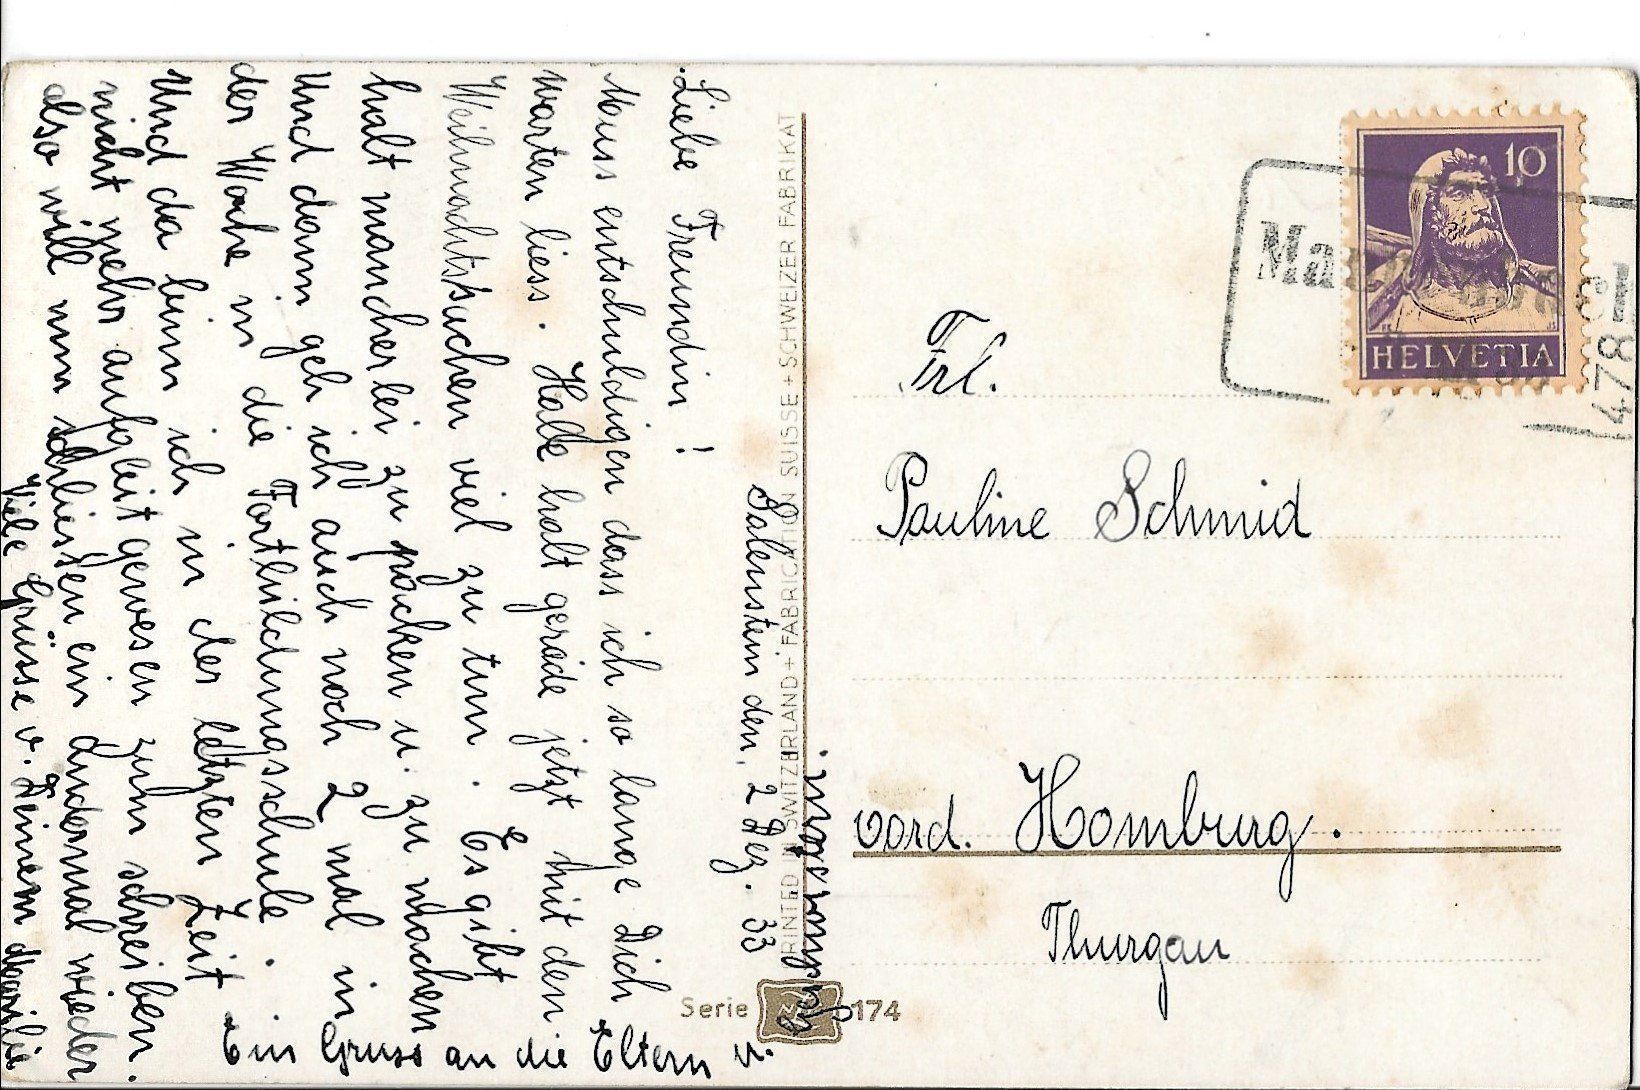 Salenstein den, 2 Dez. 33
Liebe Freundin!
Muss entschuldigen dass ich so lange Dich
warten liess. Habe halt gerade jetzt mit den
Weihnachtskuchen viel zu tun. Es gibt
halt mancherlei zu packen u. zu machen
Und dann geh ich auch noch 2 mal in
der Woche in die Fortbildungsschule.
Und da binn ich in der letzten Zeit
nicht mehr aufgleit gewesen zum schreiben.
also will nun schliessen ein andermal wieder
Viele Grüsse v. Deinem
Ein Gruss an die Eltern u.
PRINTED IN SWITZERLAND + FABRICATION SUISSE + SCHWEIZER FABRIKAT
Serie 174
10
HELVETIA
478
Frl.
Pauline Schmid
vord. Homburg.
Thurgau